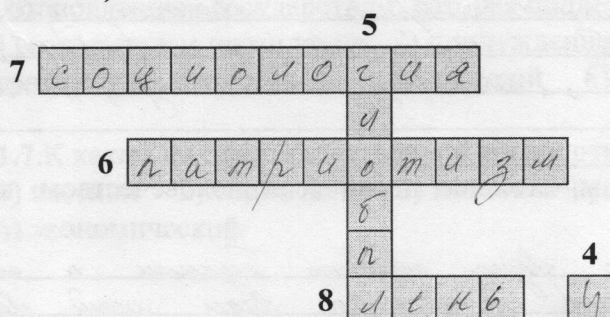 5
7 социология
л
6 патриотизм
б
п
4
8 лень